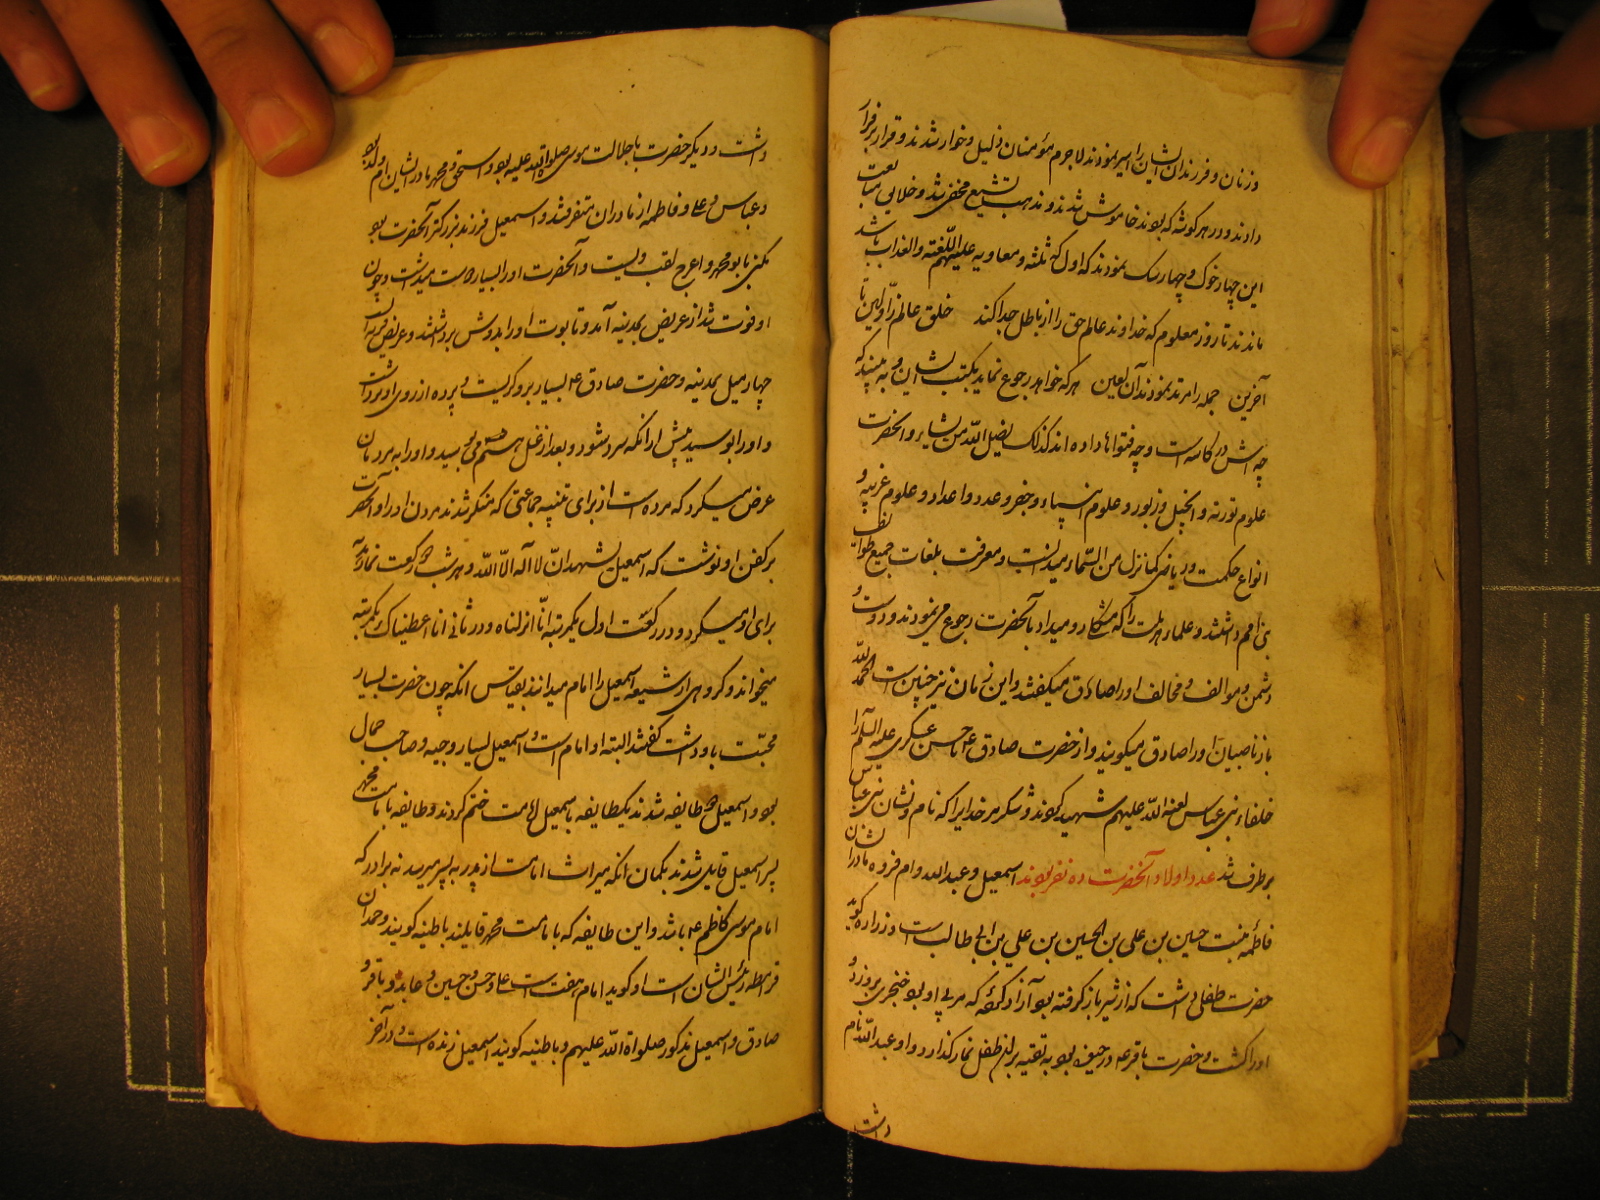 وزنان و فرزندان ایشان را اسیر نمودند لاجرم مؤمنان ذلیل و خوار شدند و قرار بر فرار
دادند و در هر گوشه که بودند خاموش شدند و مذهب تشیع مخفی شد و خلایق متابعت
این چهار خوک و چهار سک نمودند که اول که ثلثه و معاویه علیهم اللعنه والعذاب باشد
ماندند تا روز معلوم که خداوند عالم حق را از باطل جدا کند خلق عالم ز اولین تا
آخرین جمله را مرتد نمودند آن لعین هر که خواهد رجوع نماید بکتب ایشان و به بیند که
چه اش در کاسه است و چه فتواها داده اند کذلک یضل الله من یشاء و الحضرت
علوم توریة و انجیل و زبور و علوم انبیاء و جفر و عدد و اعداد و علوم غریبه و
انواع حکمت و ریاضی کما نزل من السماء میدانست و معرفت بلغات جمیع طوائف
بنی آدم داشتند و علماء هر ملت را که مشکلی رو میداد بآنحضرت رجوع می نمودند و دوست و
دشمن و موالف و مخالف او را صادق میگفتند و این زمان نیز چنین است الحمد لله
باز ناصبیان او را صادق میگویند و از حضرت صادق ع تا حسن عسکری علیه السلام را
خلفاء بنی عباس لعنة الله علیهم شهید کردند و شکر مر خدایرا که نام و نشان بنی عباس
بر طرف شد عدد اولاد آنحضرت ده نفر بودند اسمعیل و عبدالله و ام فروه مادر ایشان
فاطمه بنت حسین بن علی بن الحسین بن علی بن ابی طالب است و زراره گوید
حضرت طفلی داشت که از شیر باز گرفته بود آزاد که مربی او بود خنجری بر وزد و
او را کشت و حضرت باقر ع در بود به تقیه بر ان طفل نماز گذارد و او عبدالله نام
داشت
داشت و دیگر حضرت با جلالت موسی صلواة الله علیه بود و اسحق و محمد مادر ایشان ام ولد بود
و عباس و علی و فاطمه از مادران متفرقند و اسمعیل فرزند بزرکتر آنحضرت بود
مکنی بابو محمد و اعرج لقب ویست و آنحضرت او را بسیار دوست میداشت و چون
او فوت شد از عریض بمدینه آمد و تابوت او را بدوش برداشتند و عریض
چهار میل بمدینه و حضرت صادق ع بسیار بر او کریست و پرده از روی او برداشت
و او را بوسید پیش از آنکه سرد شود و بعد از غسل هم می بوسید و او را به مردمان
عرض میکرد که مرده است از برای تنبیه جماعتی که منکر شدند مردن او را و آنحضرت
بر کفن او نوشت که اسمعیل یشهد ان لا اله الا الله و هر شب دو رکعت نماز
برای او میکرد و در رکعت اول یکمرتبه انا انزلناه و در ثانی انا اعطیناک یکمرتبه
میخواند و کروهی از شیعه اسمعیل را امام میدانند بقیاس انکه چون حضرت بسیار
محبت باو داشت گفتند البته او امام است و اسمعیل بسیار وجیه و صاحب جمال
بود و اسمعیلیه دو طایفه شدند یکطایفه باسمعیل امامت ختم کردند و طایفه بامامت محمد
پسر اسمعیل قایل شدند بکمان انکه میراث امامت از پدر به پسر میرسد نه برادر که
امام موسی کاظم ع باشد و این طایفه که بامامت محمد قایلند باطنیه گویند و حمدان
قرمطه رئیس ایشان است او گوید امام هفت است علی و حسن و حسین و عابد و باقر و
صادق و اسمعیل مذکور صلواة الله علیهم و باطنیه گویند اسمعیل زنده است و در آخر